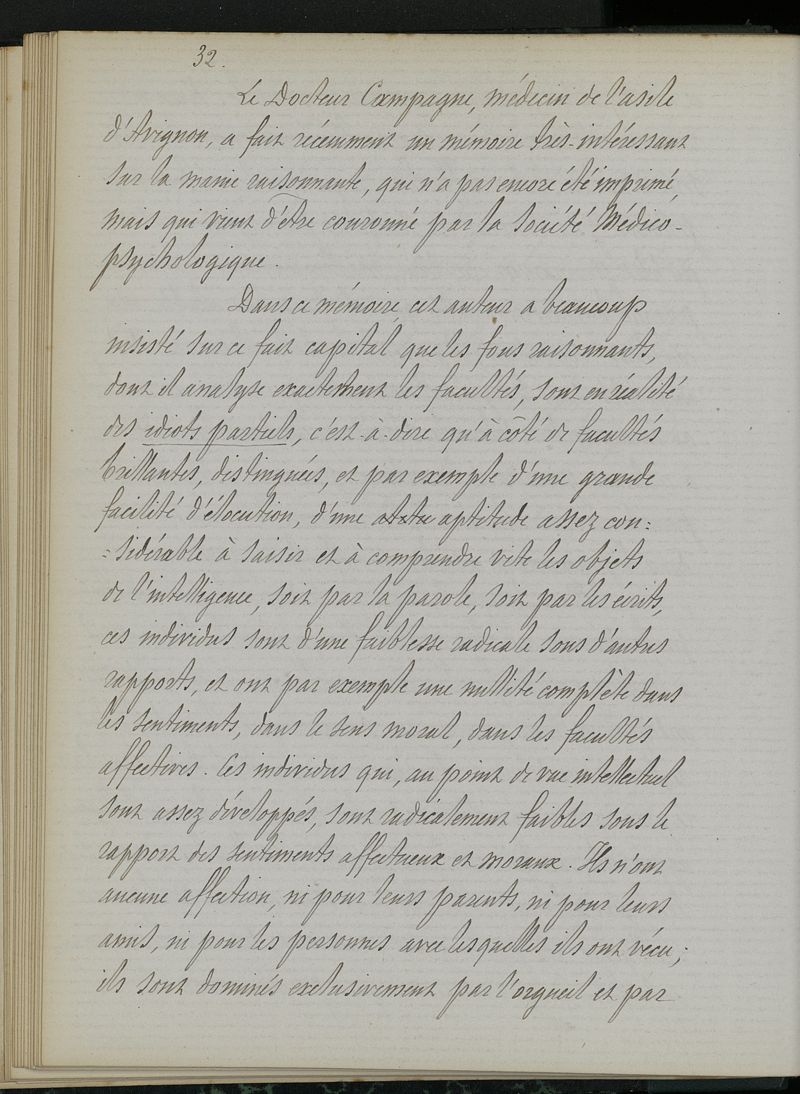 32.
Le Docteur Campagne, médecin de l'asile
d'Avignon, a fait récemment un mémoire très-intéressant
sur la manie raisonnante, qui n'a pas encore été imprimé,
mais qui vient d'être couronné par la Société Médico-
psychologique.
Dans ce mémoire, cet auteur a beaucoup
insisté sur ce fait capital que les fous raisonnants,
dont il analyse exactement les facultés, sont en réalité
des idiots partiels, c'est-à-dire qu'à côté de facultés
brillantes, distinguées, et par exemple d'une grande
facilité d'élocution, d'une aptitude assez con=
=sidérable à saisir et à comprendre vite les objets
de l'intelligence, soit par la parole, soit par les écrits,
ces individus sont d'une faiblesse radicale sous d'autres
rapports, et ont par exemple une nullité complète dans
les sentiments, dans le sens moral, dans les facultés
affectives. Ces individus qui, au point de vue intellectuel
sont assez développés, sont radicalement faibles sous le
rapport des sentiments affectueux et moraux. Ils n'ont
aucune affection, ni pour leurs parents, ni pour leurs
amis, ni pour les personnes avec lesquelles ils ont vécu;
ils sont dominés exclusivement par l'orgueil et par